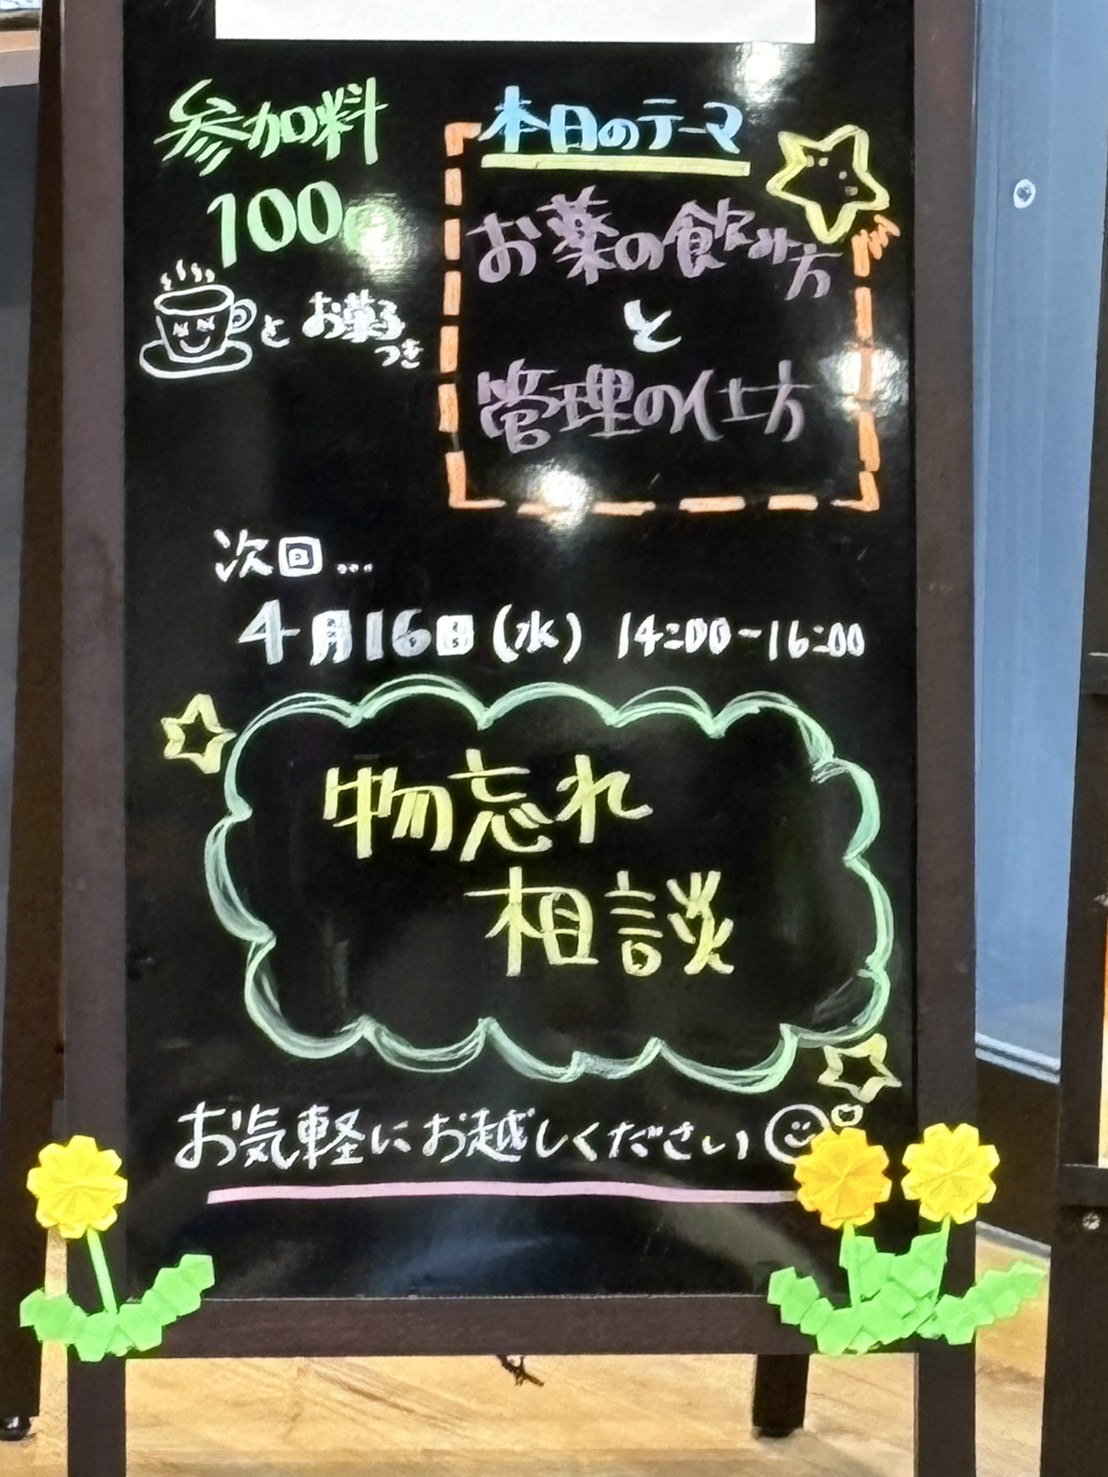 参加料
100円
と お菓子つき
本日のテーマ
お薬の飲み方
と
管理の仕方
次回...
4月16日(水) 14:00-16:00
物忘れ
相談
お気軽にお越しください